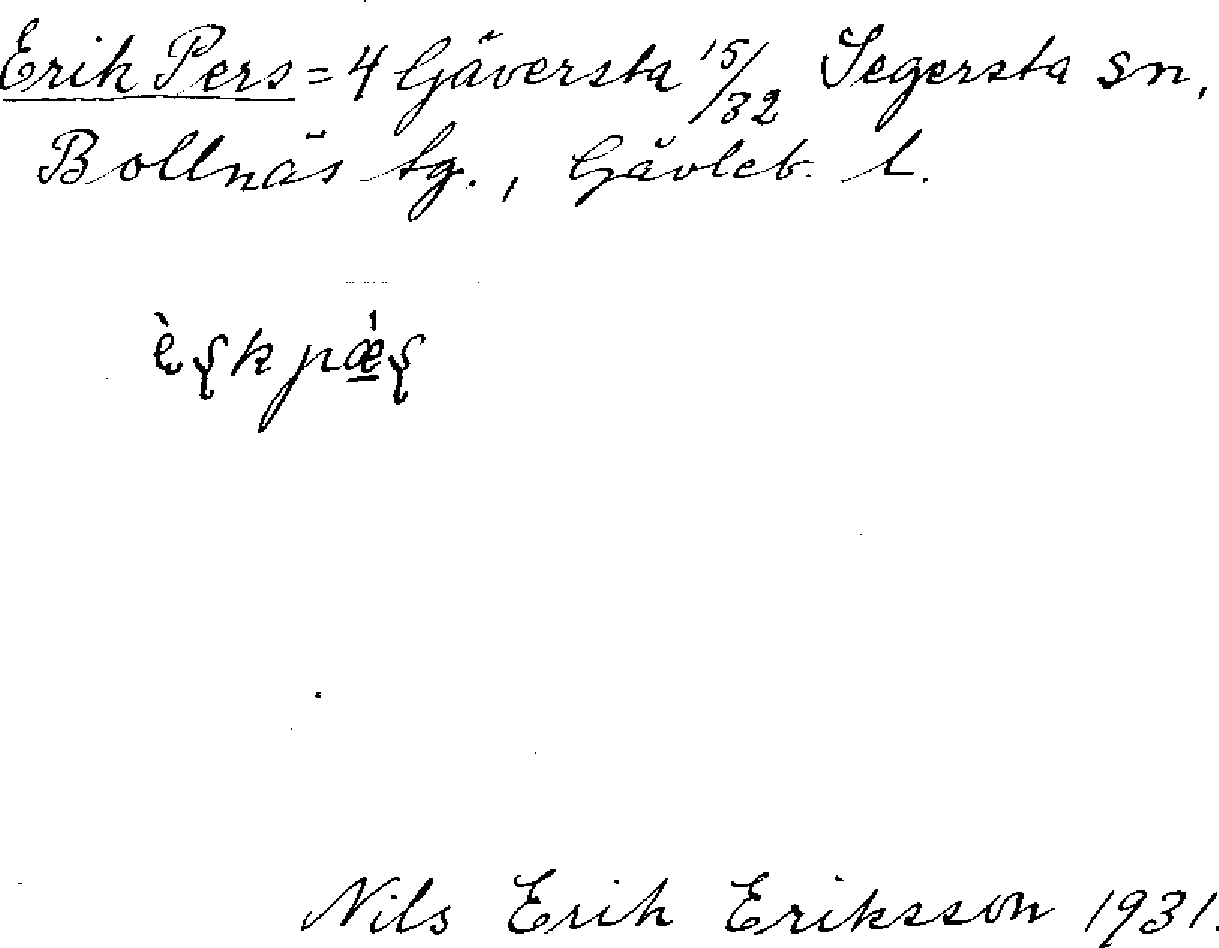 Erik Pers = 4 Gäversta 15/32 Segersta sn,
Bollnäs tg., Gävleb. l.
Nils Erik Eriksson 1931.